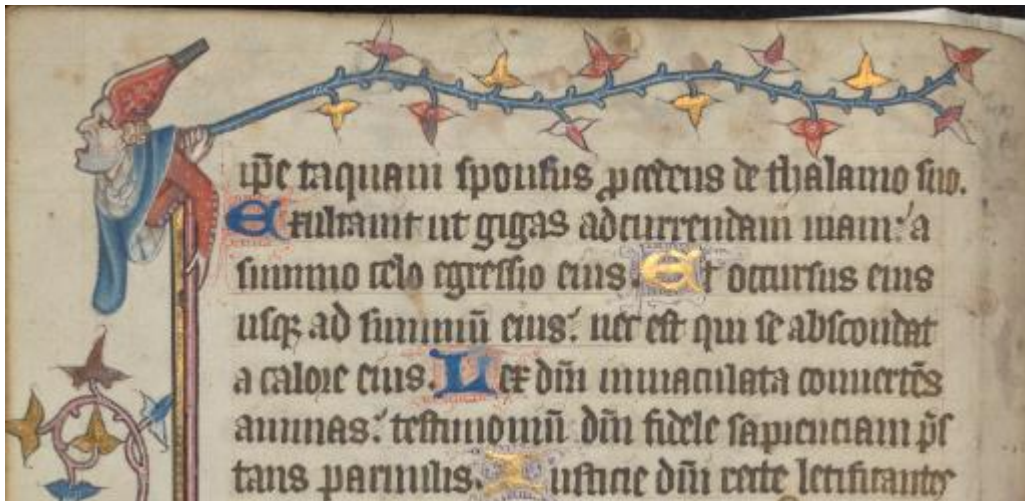 ip̄e taquam sponsus ꝓcedens de thalamo suo.
Exultauit ut gigas ad currendam uiam: a
summo celo egressio eius. Et occursus eius
usqꝫ ad summū eius: nec est qui se abscondat
a calore eius. Lex dn̄i inmaculata conuertēs
animas: testimoniū dn̄i fidele sapienciam p̄s
tans paruulis. Iusticie dn̄i recte letificantes